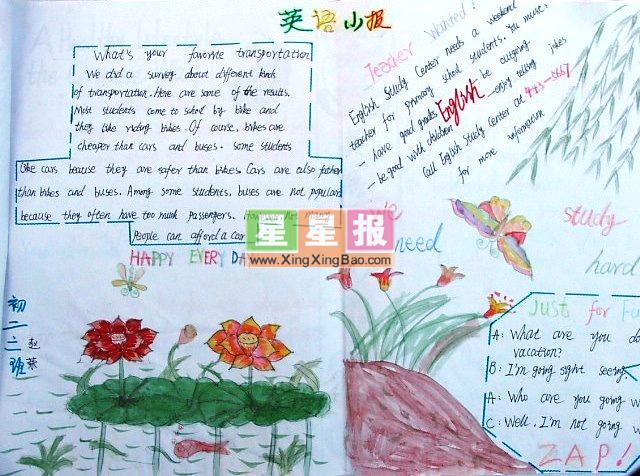 英语小报
What's your favorite transportation
We did a survey about different kinds
of transportation. Here are some of the results.
Most students come to school by bike and
they like riding bikes. Of course, bikes are
cheaper than cars and buses. Some students
like cars because they are safer than bikes. Cars are also faster
than bikes and buses. Among some students, buses are not popular
because they often have too much passengers. However, not many
people can afford a car
HAPPY EVERY DA
星星报
www.XingXingBao.com
初二二班
赵荣
Teacher Wanted!
English Study Center needs a weekend
teacher for primary school students. You must:
- have good grades English be outgoing
- be good with children - enjoy telling jokes
Call English Study Center at 443-5667
for more information
We need
study hard
Just for Fu
A: What are you do
vacation?
B: I'm going sight seeing.
A: Who are you going w
C: Well, I'm not going w
ZAP!